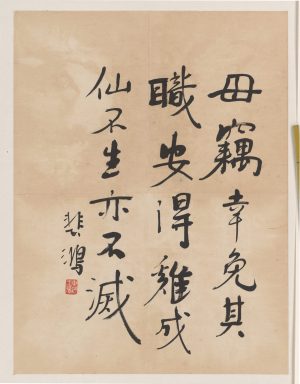 毋竊幸免其
職安得雞成
仙不生亦不滅
悲鴻